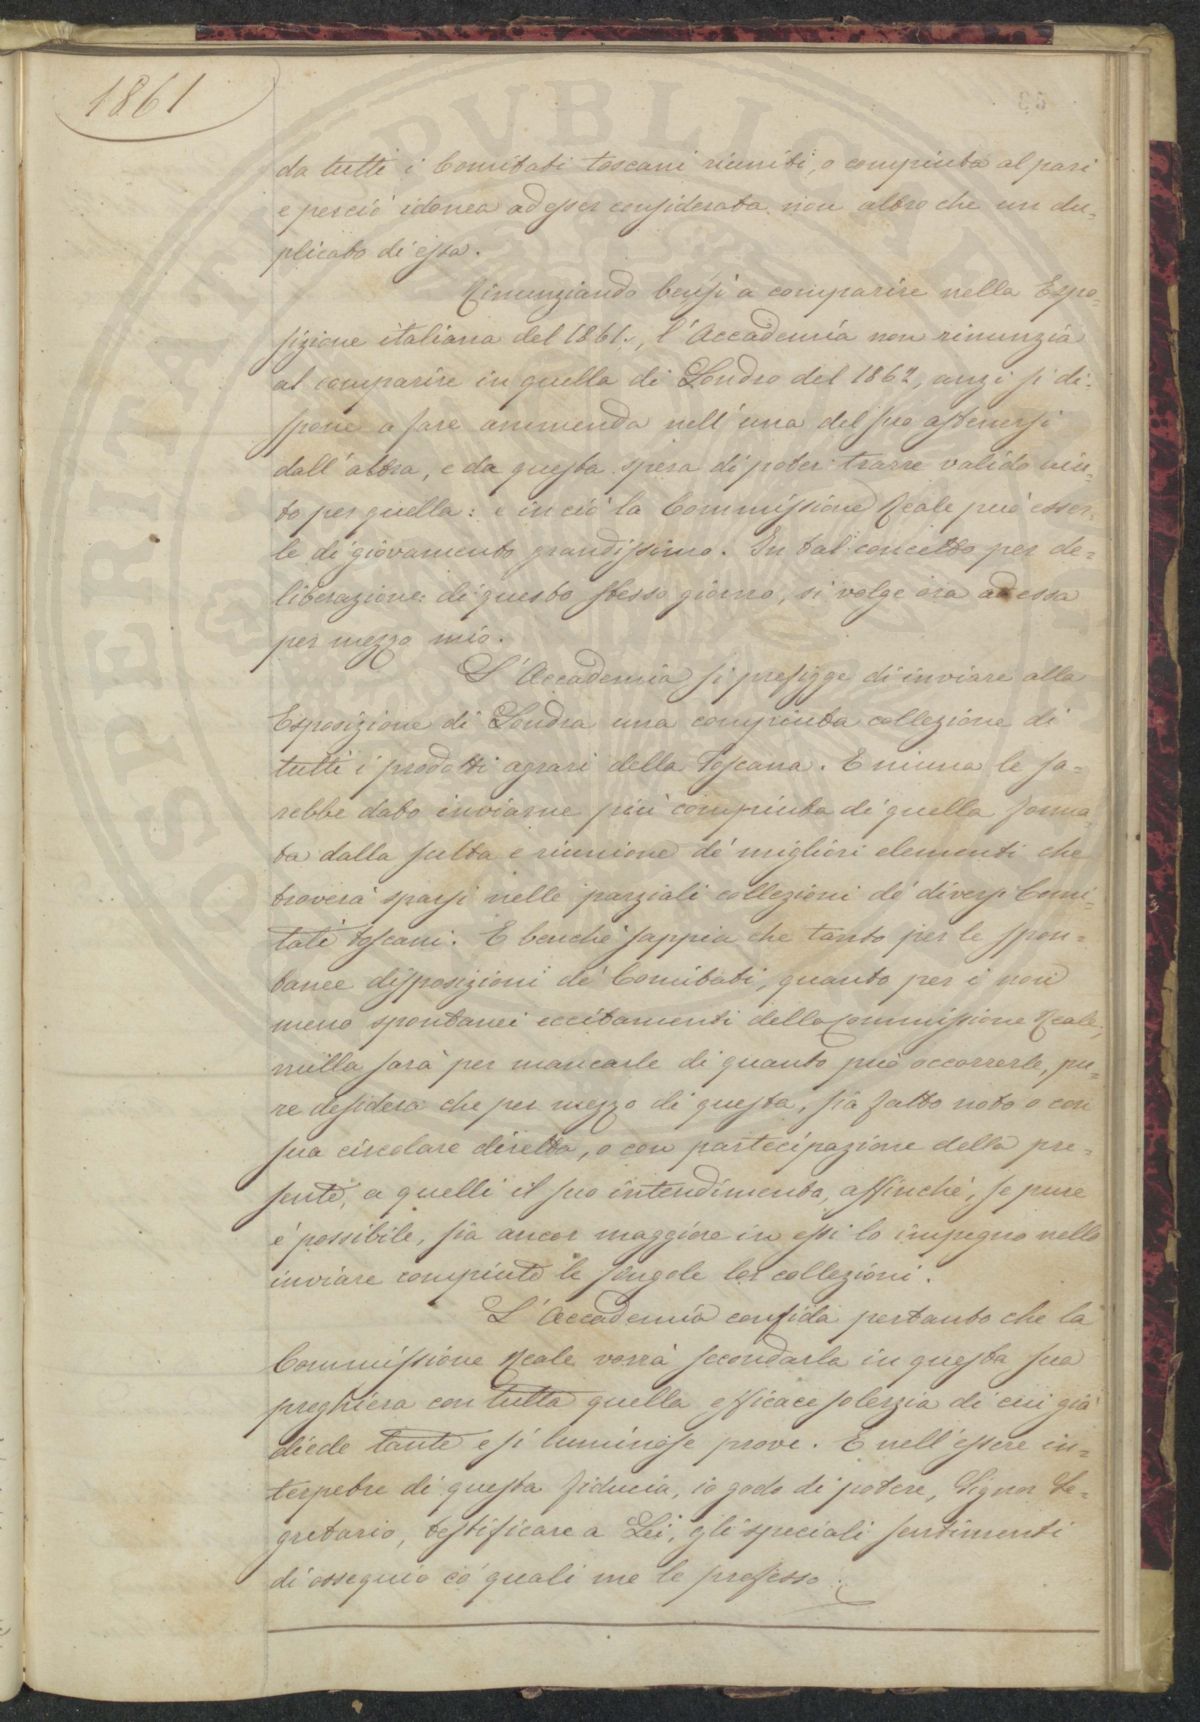 1861
da tutti i Comitati toscani riuniti, o compiuta al pari
e perciò idonea ad esser considerata non altro che un du-
plicato di essa.
Rinunziando bensì a comparire nella Espo-
sizione italiana del 1861., l'Accademia non rinunzia
al comparire in quella di Londra del 1862, anzi si di-
spone a fare ammenda nell'una del suo astenersi
dall'altra, e da questa spera di poter trarre valido aiu-
to per quella: e in ciò la Commissione Reale può esser-
le di giovamento grandissimo. In tal concetto per de-
liberazione di questo stesso giorno, si volge ora ad essa
per mezzo mio.
L'Accademia si prefigge di inviare alla
Esposizione di Londra una compiuta collezione di
tutti i prodotti agrari della Toscana. E niuna le sa-
rebbe dato inviarne più compiuta di quella forma-
ta dalla scelta e riunione de' migliori elementi che
troverà sparsi nelle parziali collezioni de' diversi Comi-
tati toscani. E benchè sappia che tanto per le spon-
tanee disposizioni de' Comitati, quanto per i non
meno spontanei eccitamenti della Commissione Reale,
nulla sarà per mancarle di quanto può occorrerle, pu-
re desidera che per mezzo di questa, sia fatto noto o con
sua circolare diretta, o con partecipazione della pre-
sente, a quelli il suo intendimento, affinchè, se pure
è possibile, sia ancor maggiore in essi lo impegno nello
inviare compiute le singole lor collezioni.
L'Accademia confida pertanto che la
Commissione Reale vorrà secondarla in questa sua
preghiera con tutta quella efficace solerzia di cui già
diede tante e sì luminose prove. E nell'essere in-
terpetre di questa fiducia, io godo di potere, Signor Se-
gretario, testificare a Lei, gli speciali sentimenti
di ossequio co' quali me le professo.